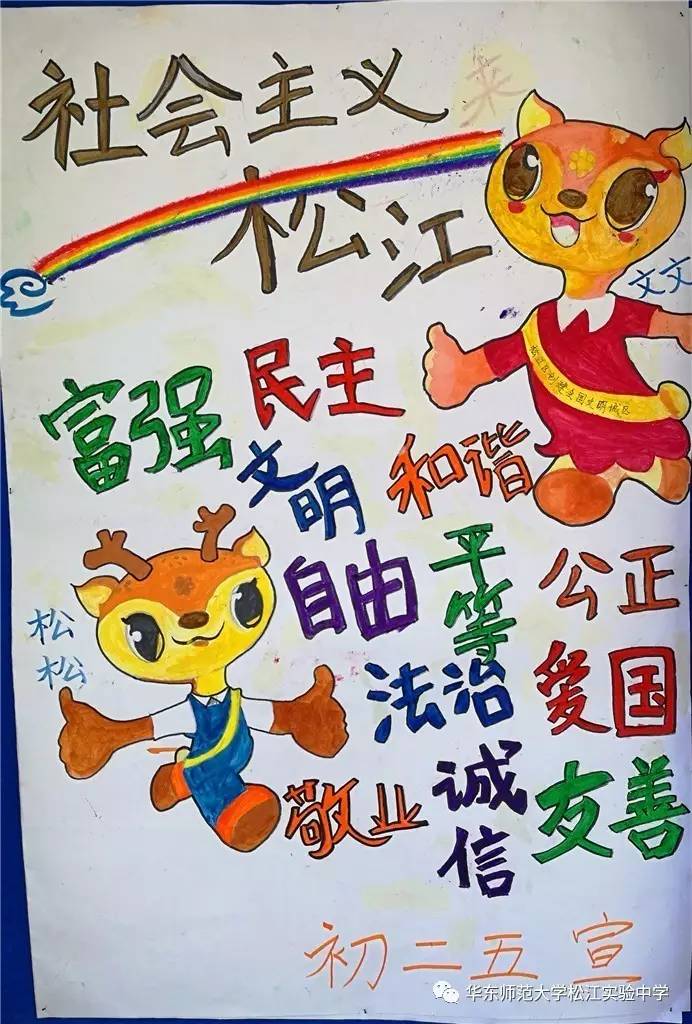 社会主义
来
松江
文文
松江区创建全国文明城区
富强
民主
文明
和谐
自由
平等
公正
松松
法治
爱国
敬业
诚信
友善
初二五 宣
华东师范大学松江实验中学